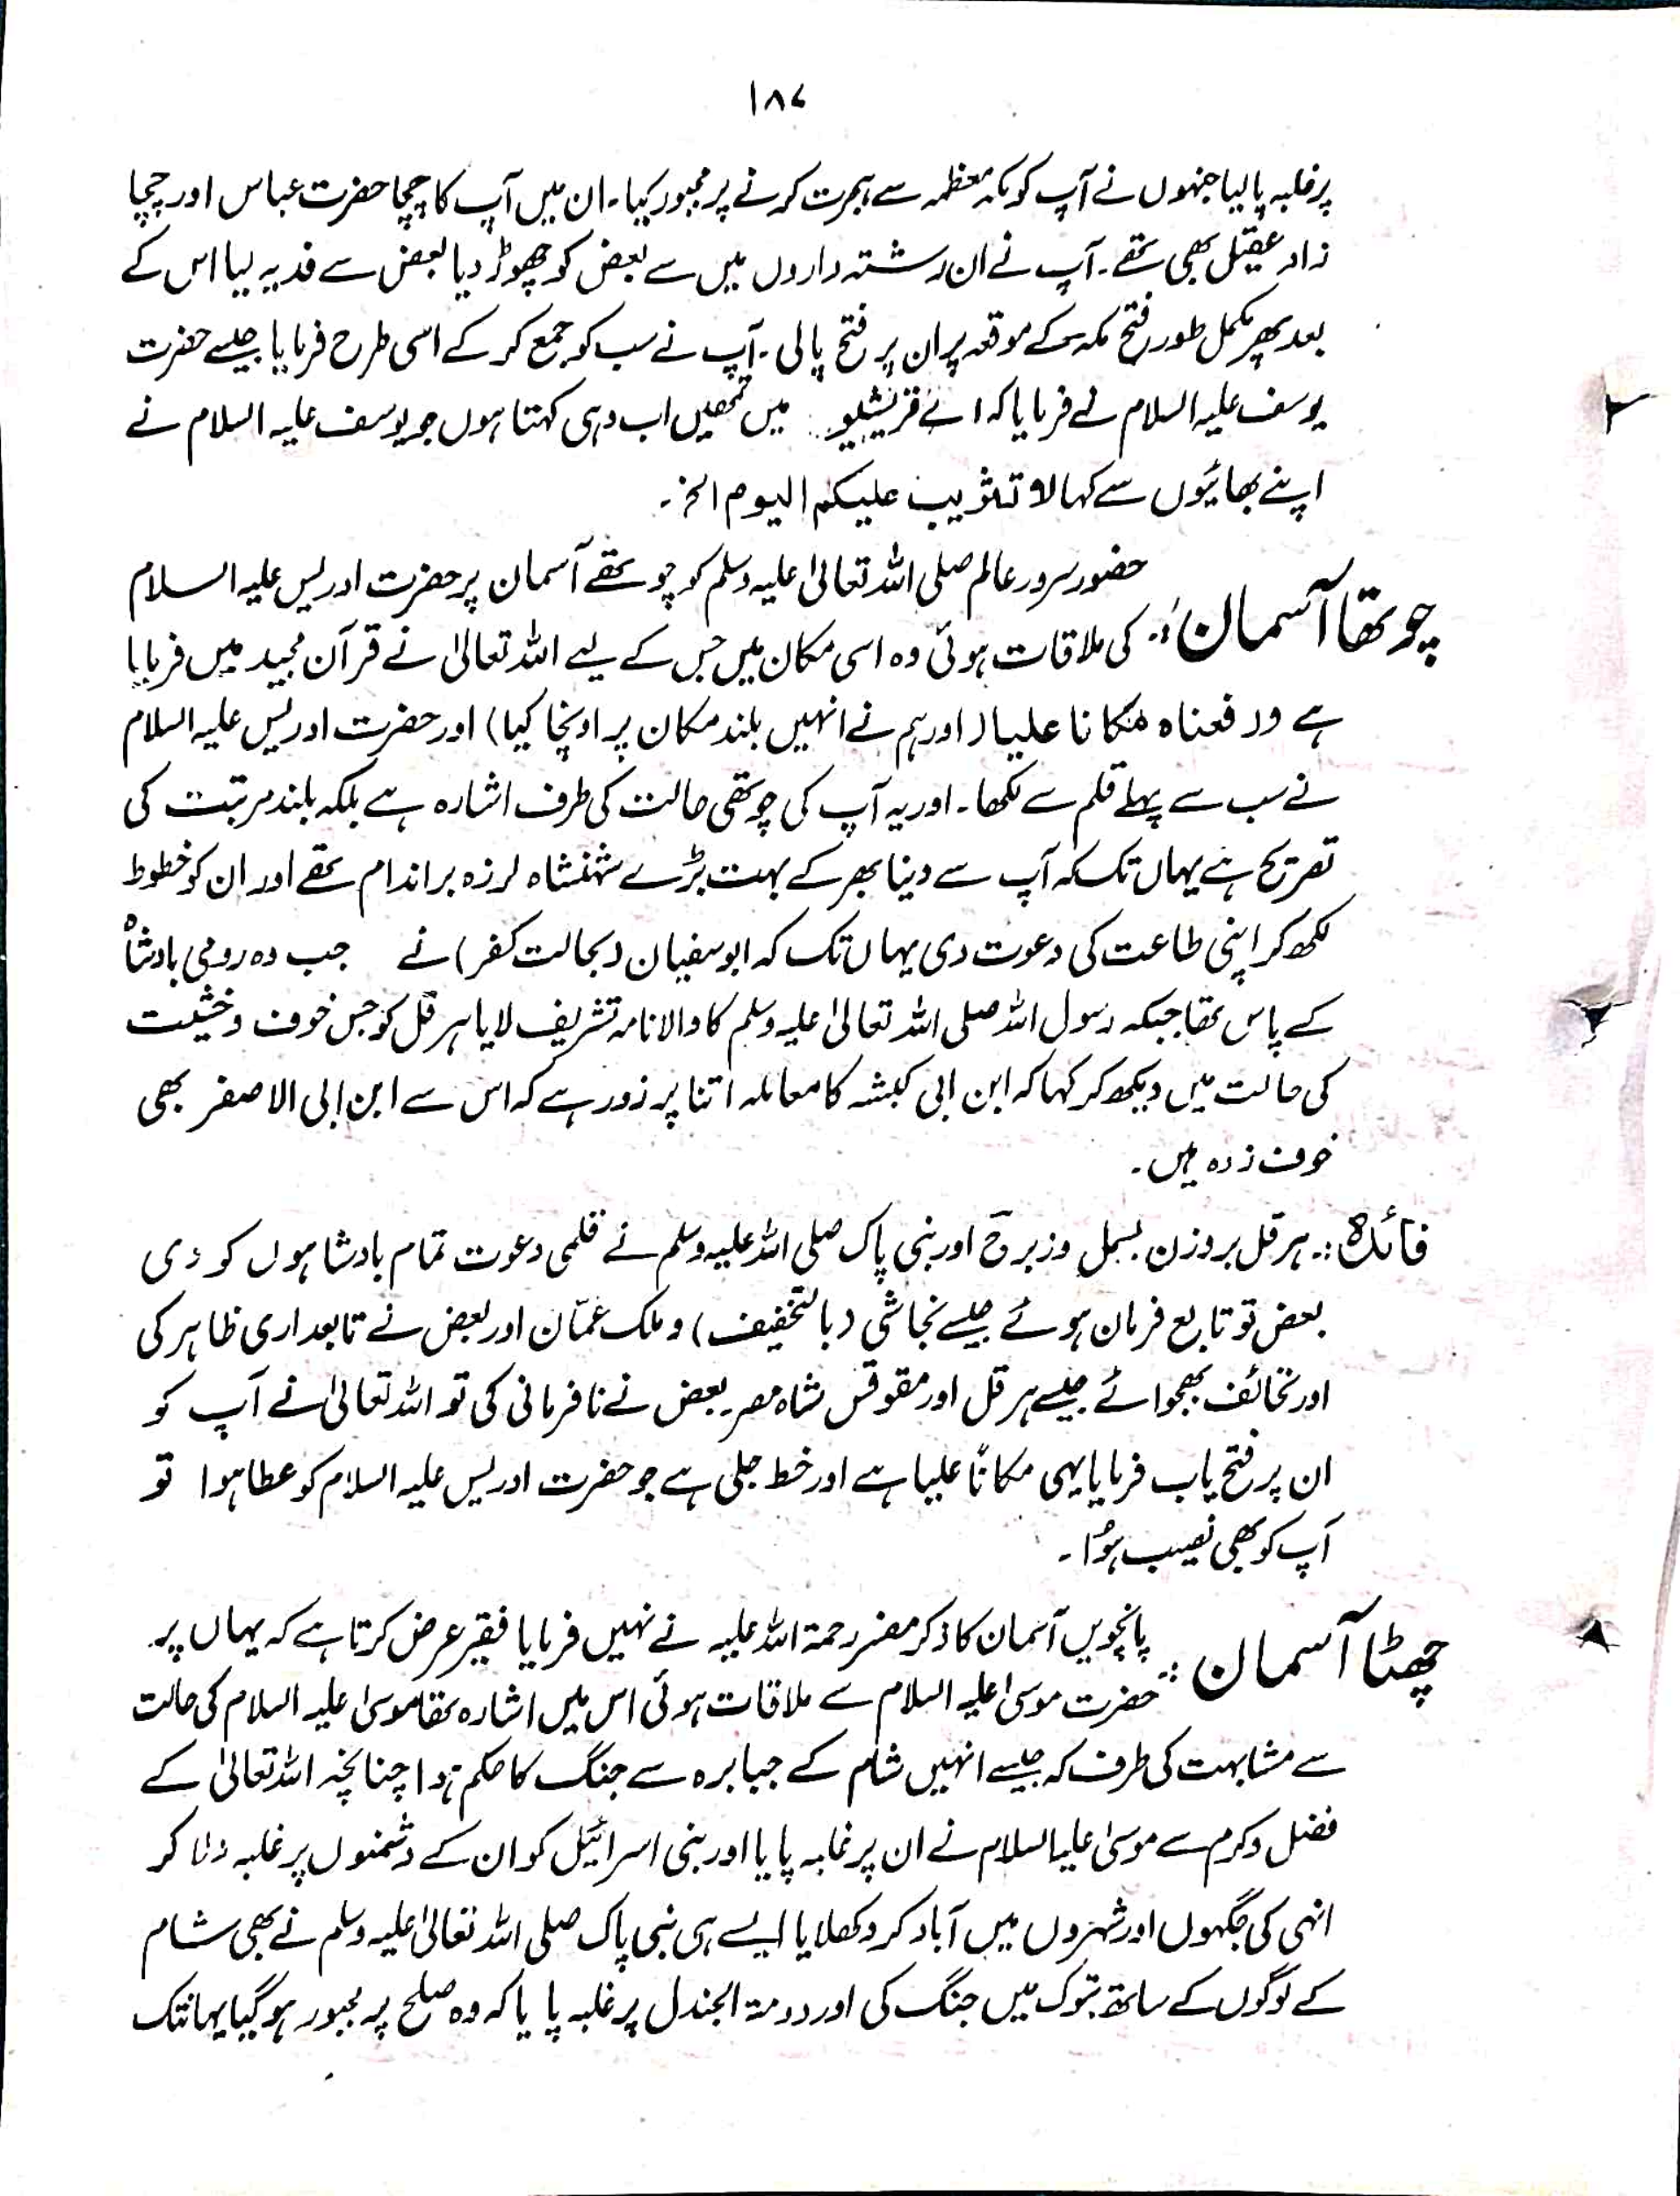 ۱۸۷
پر غلبہ پا لیا جنہوں نے آپ کو مکہ معظمہ سے ہجرت کرنے پر مجبور کیا۔ ان میں آپ کا چچا حضرت عباس اور چچا
زاد عقیل بھی تھے۔ آپ نے ان رشتہ داروں میں سے بعض کو چھوڑ دیا بعض سے فدیہ لیا اس کے
بعد پھر مکمل طور فتح مکہ کے موقعہ پر ان پر فتح پالی۔ آپ نے سب کو جمع کر کے اسی طرح فرمایا جیسے حضرت
یوسف علیہ السلام نے فرمایا کہ اے قریشیو میں تمھیں اب وہی کہتا ہوں جو یوسف علیہ السلام نے
اپنے بھائیوں سے کہا لا تثریب علیکم الیوم الخ۔
چوتھا آسمان:۔ حضور سرور عالم صلی اللہ تعالیٰ علیہ وسلم کو چوتھے آسمان پر حضرت ادریس علیہ السلام
کی ملاقات ہوئی وہ اسی مکان میں جس کے لیے اللہ تعالیٰ نے قرآن مجید میں فرمایا
ہے ورفعناہ مکانا علیا (اور ہم نے انہیں بلند مکان پر اونچا کیا) اور حضرت ادریس علیہ السلام
نے سب سے پہلے قلم سے لکھا۔ اور یہ آپ کی چوتھی حالت کی طرف اشارہ ہے بلکہ بلند مرتبت کی
تصریح ہے یہاں تک کہ آپ سے دنیا بھر کے بہت بڑے شہنشاہ لرزہ براندام تھے اور ان کو خطوط
لکھ کر اپنی طاعت کی دعوت دی یہاں تک کہ ابوسفیان (بحالت کفر) نے جب وہ رومی بادشاہ
کے پاس تھا جبکہ رسول اللہ صلی اللہ تعالیٰ علیہ وسلم کا والا نامہ تشریف لایا ہرقل کو جس خوف و خشیت
کی حالت میں دیکھ کر کہا کہ ابن ابی کبشہ کا معاملہ اتنا پر زور ہے کہ اس سے ابن ابی الاصفر بھی
خوف زدہ ہیں۔
فائدہ:۔ ہرقل بروزن بسمل وزبرج اور نبی پاک صلی اللہ علیہ وسلم نے قلمی دعوت تمام بادشاہوں کو دی
بعض تو تابع فرمان ہوئے جیسے نجاشی (بالتخفیف) و ملک عمّان اور بعض نے تابعداری ظاہر کی
اور تحائف بھجوائے جیسے ہرقل اور مقوقس شاہ مصر۔ بعض نے نافرمانی کی تو اللہ تعالیٰ نے آپ کو
ان پر فتح یاب فرمایا یہی مکانًا علیا ہے اور خط جلی ہے جو حضرت ادریس علیہ السلام کو عطا ہوا تو
آپ کو بھی نصیب ہؤا۔
چھٹا آسمان:۔ پانچویں آسمان کا ذکر مفسر رحمۃ اللہ علیہ نے نہیں فرمایا فقیر عرض کرتا ہے کہ یہاں پر
حضرت موسیٰ علیہ السلام سے ملاقات ہوئی اس میں اشارہ تھا موسیٰ علیہ السلام کی حالت
سے مشابہت کی طرف کہ جیسے انہیں شام کے جبابرہ سے جنگ کا حکم ہوا چنانچہ اللہ تعالیٰ کے
فضل و کرم سے موسیٰ علیہ السلام نے ان پر غلبہ پایا اور بنی اسرائیل کو ان کے دشمنوں پر غلبہ دلا کر
انہی کی جگہوں اور شہروں میں آباد کر دکھلایا ایسے ہی نبی پاک صلی اللہ تعالیٰ علیہ وسلم نے بھی شام
کے لوگوں کے ساتھ تبوک میں جنگ کی اور دومۃ الجندل پر غلبہ پایا کہ وہ صلح پر مجبور ہو گیا یہانتک